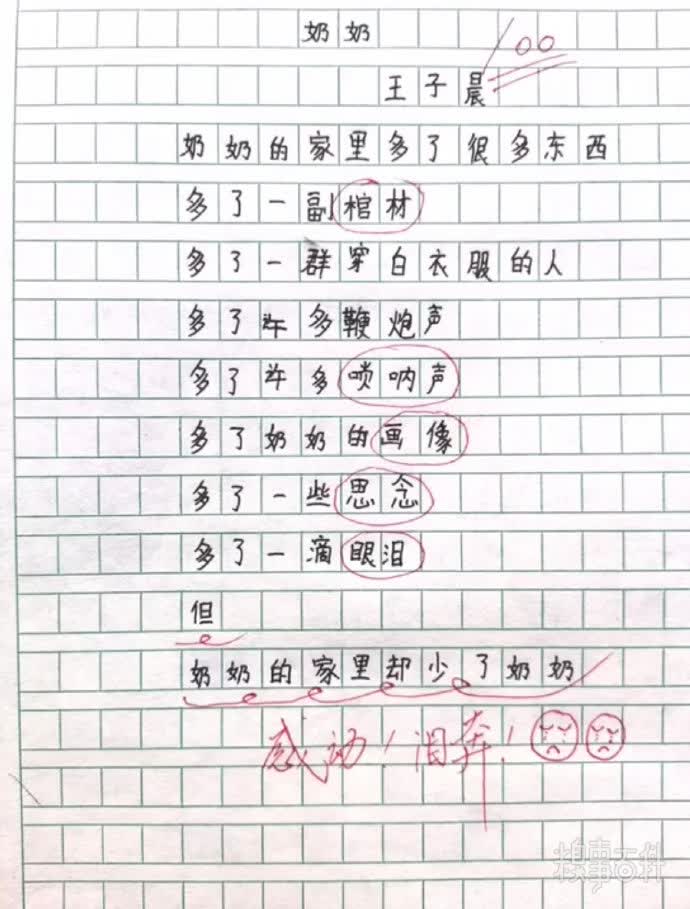 奶奶
100
王子晨
奶奶的家里多了很多东西
多了一副棺材
多了一群穿白衣服的人
多了许多鞭炮声
多了许多唢呐声
多了奶奶的画像
多了一些思念
多了一滴眼泪
但
奶奶的家里却少了奶奶
感动！泪奔！
糗事百科